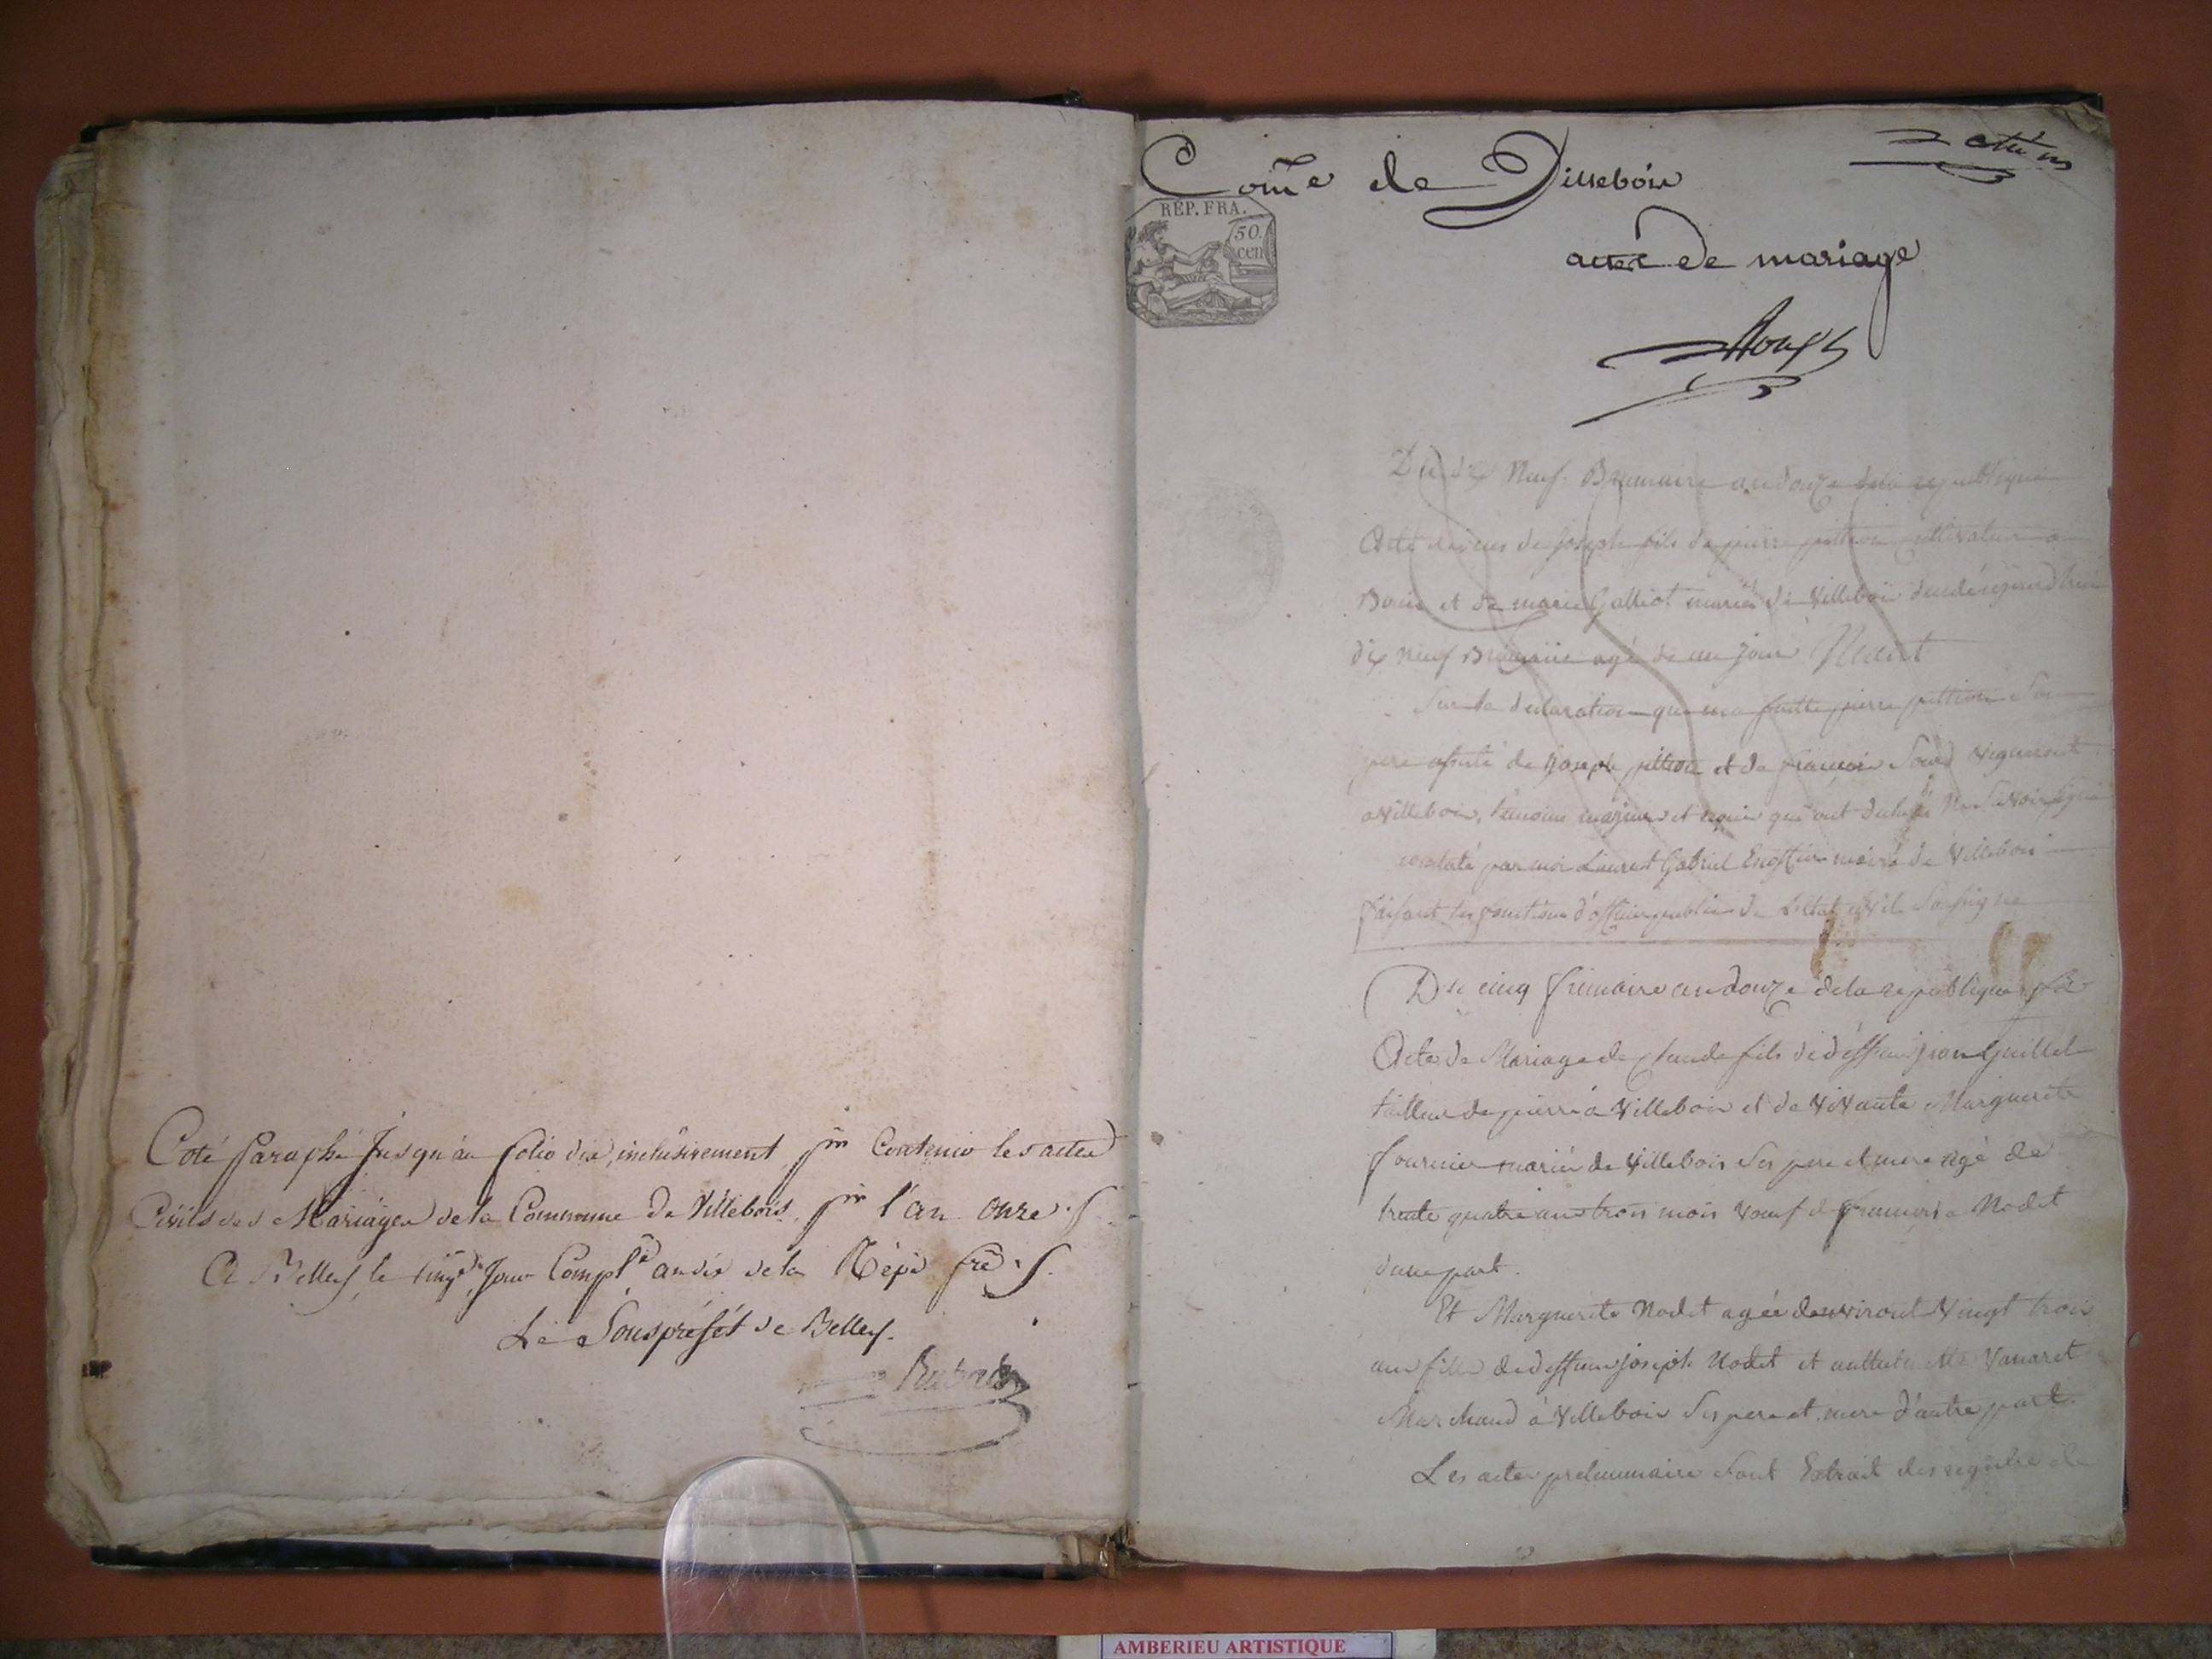 Coté Paraphé Jusqu'au folio dix, inclusivement pm Contenir les actes
Civils des Mariages de la Commune de Villebois, pm l'an onze
A Belley le cinqe Jour Complre an dix de la Rép. fre
Le Souspréfét de Belley.
Come de Villebois
actes de mariage
RÉP. FRA.
50.
cen
Du dix Neuf Brumaire an douze de la republique
Acte de de Joseph fils de pierre pittion cultivateur a
Bouis et de marie Galliot mariés de Villebois
dix Neuf Brumaire agé de un jour Neant
Sur la declaration que ma faitte pierre pittion Son
pere assisté de Joseph pittion et de françois Sourd vigneront
a Villebois, témoins majeurs et requis qui ont declaré Non Savoir signé
constaté par moi Laurent Gabriel maire de Villebois
faisant les fonctions d'officier public de L'Etat civil Sousigné
Du cinq frimaire an douze de la republique
Acte de Mariage de Claude fils de deffunt jean Guillet
tailleur de pierre a Villebois et de ViVante Marguerite
fournier mariés de Villebois Ses pere et mere agé de
trente quatre ans trois mois veuf de françoise Nodet
d'une part.
Et Marguerite Nodet agée denviront Vingt trois
ans fille de deffunt joseph Nodet et Vanaret
Marchand à Villebois Ses pere et mere d'autre part.
Les actes preliminaire Sont Extrait des registre de
AMBERIEU ARTISTIQUE